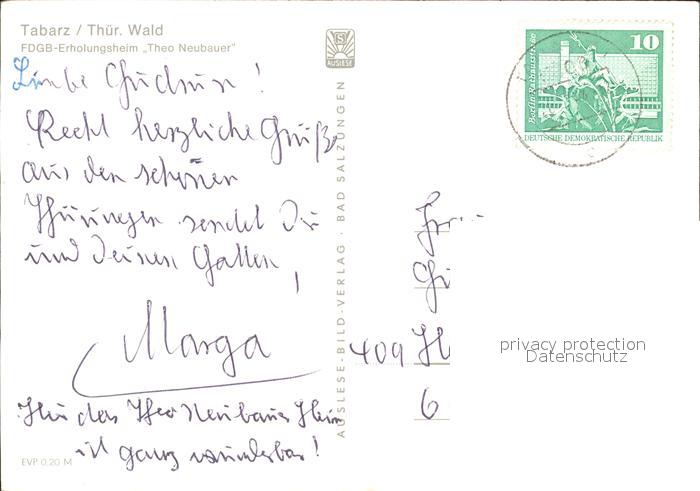 Tabarz / Thür. Wald
FDGB-Erholungsheim „Theo Neubauer"
Liebe Gudrun !
Recht herzliche Grüße
aus den schönen
Thüringen sendet Dir
und Deinen Gatten
!
Marga
Hier das Theo Neubauer Heim
ist ganz wunderbar!
EVP 0,20 M
AUSLESE
AUSLESE-BILD-VERLAG · BAD SALZUNGEN
Berlin, Rathausstraße
10
DEUTSCHE DEMOKRATISCHE REPUBLIK
409 H
6
privacy protection
Datenschutz